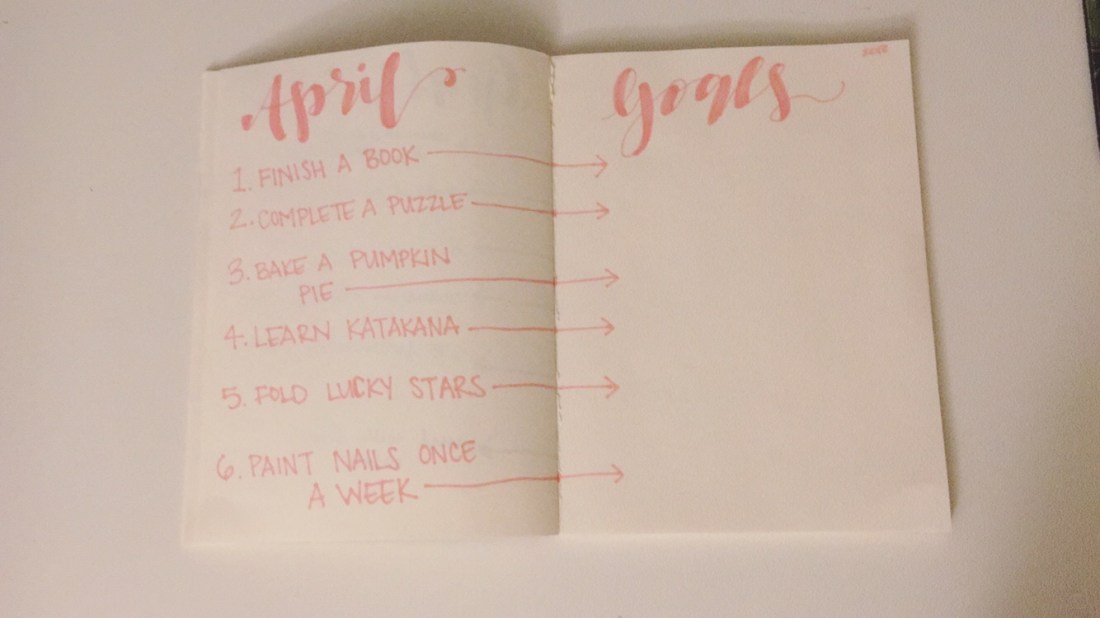 April Goals
1. FINISH A BOOK
2. COMPLETE A PUZZLE
3. BAKE A PUMPKIN
PIE
4. LEARN KATAKANA
5. FOLD LUCKY STARS
6. PAINT NAILS ONCE
A WEEK